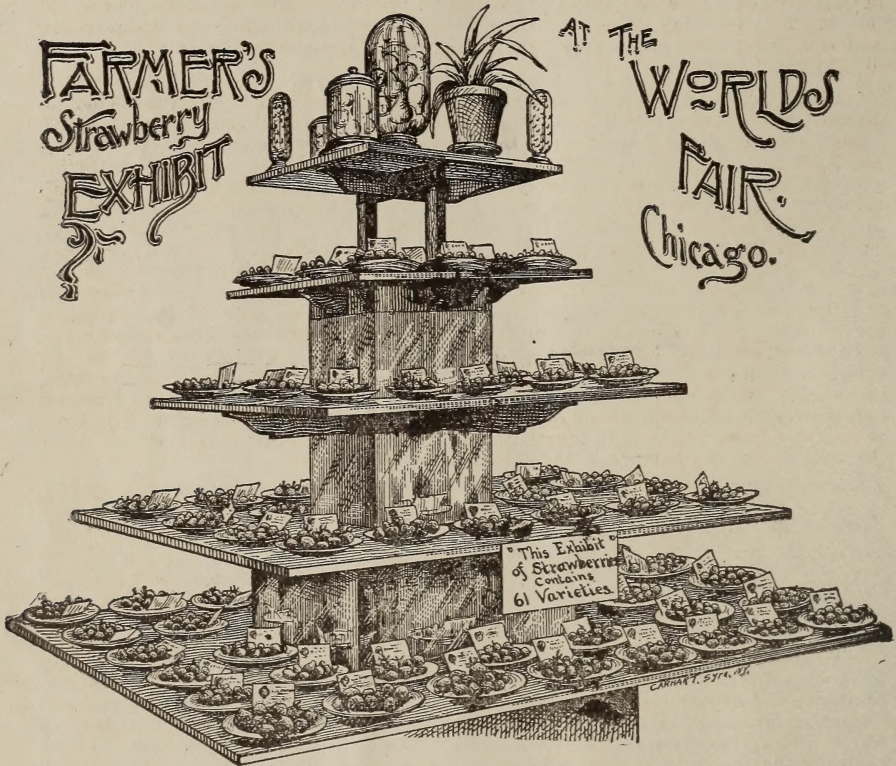 FARMER'S
Strawberry
EXHIBIT
AT THE
WORLDS
FAIR,
Chicago.
"This Exhibit"
of Strawberries
Contains
61 Varieties.
CARHART. SYR. N.Y.